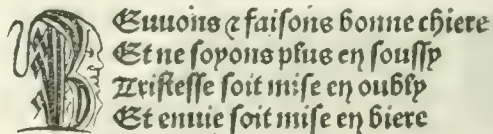 Beuuons ⁊ faisons bonne chiere
Et ne soyons plus en soussy
Tristesse soit mise en oubly
Et enuie soit mise en biere